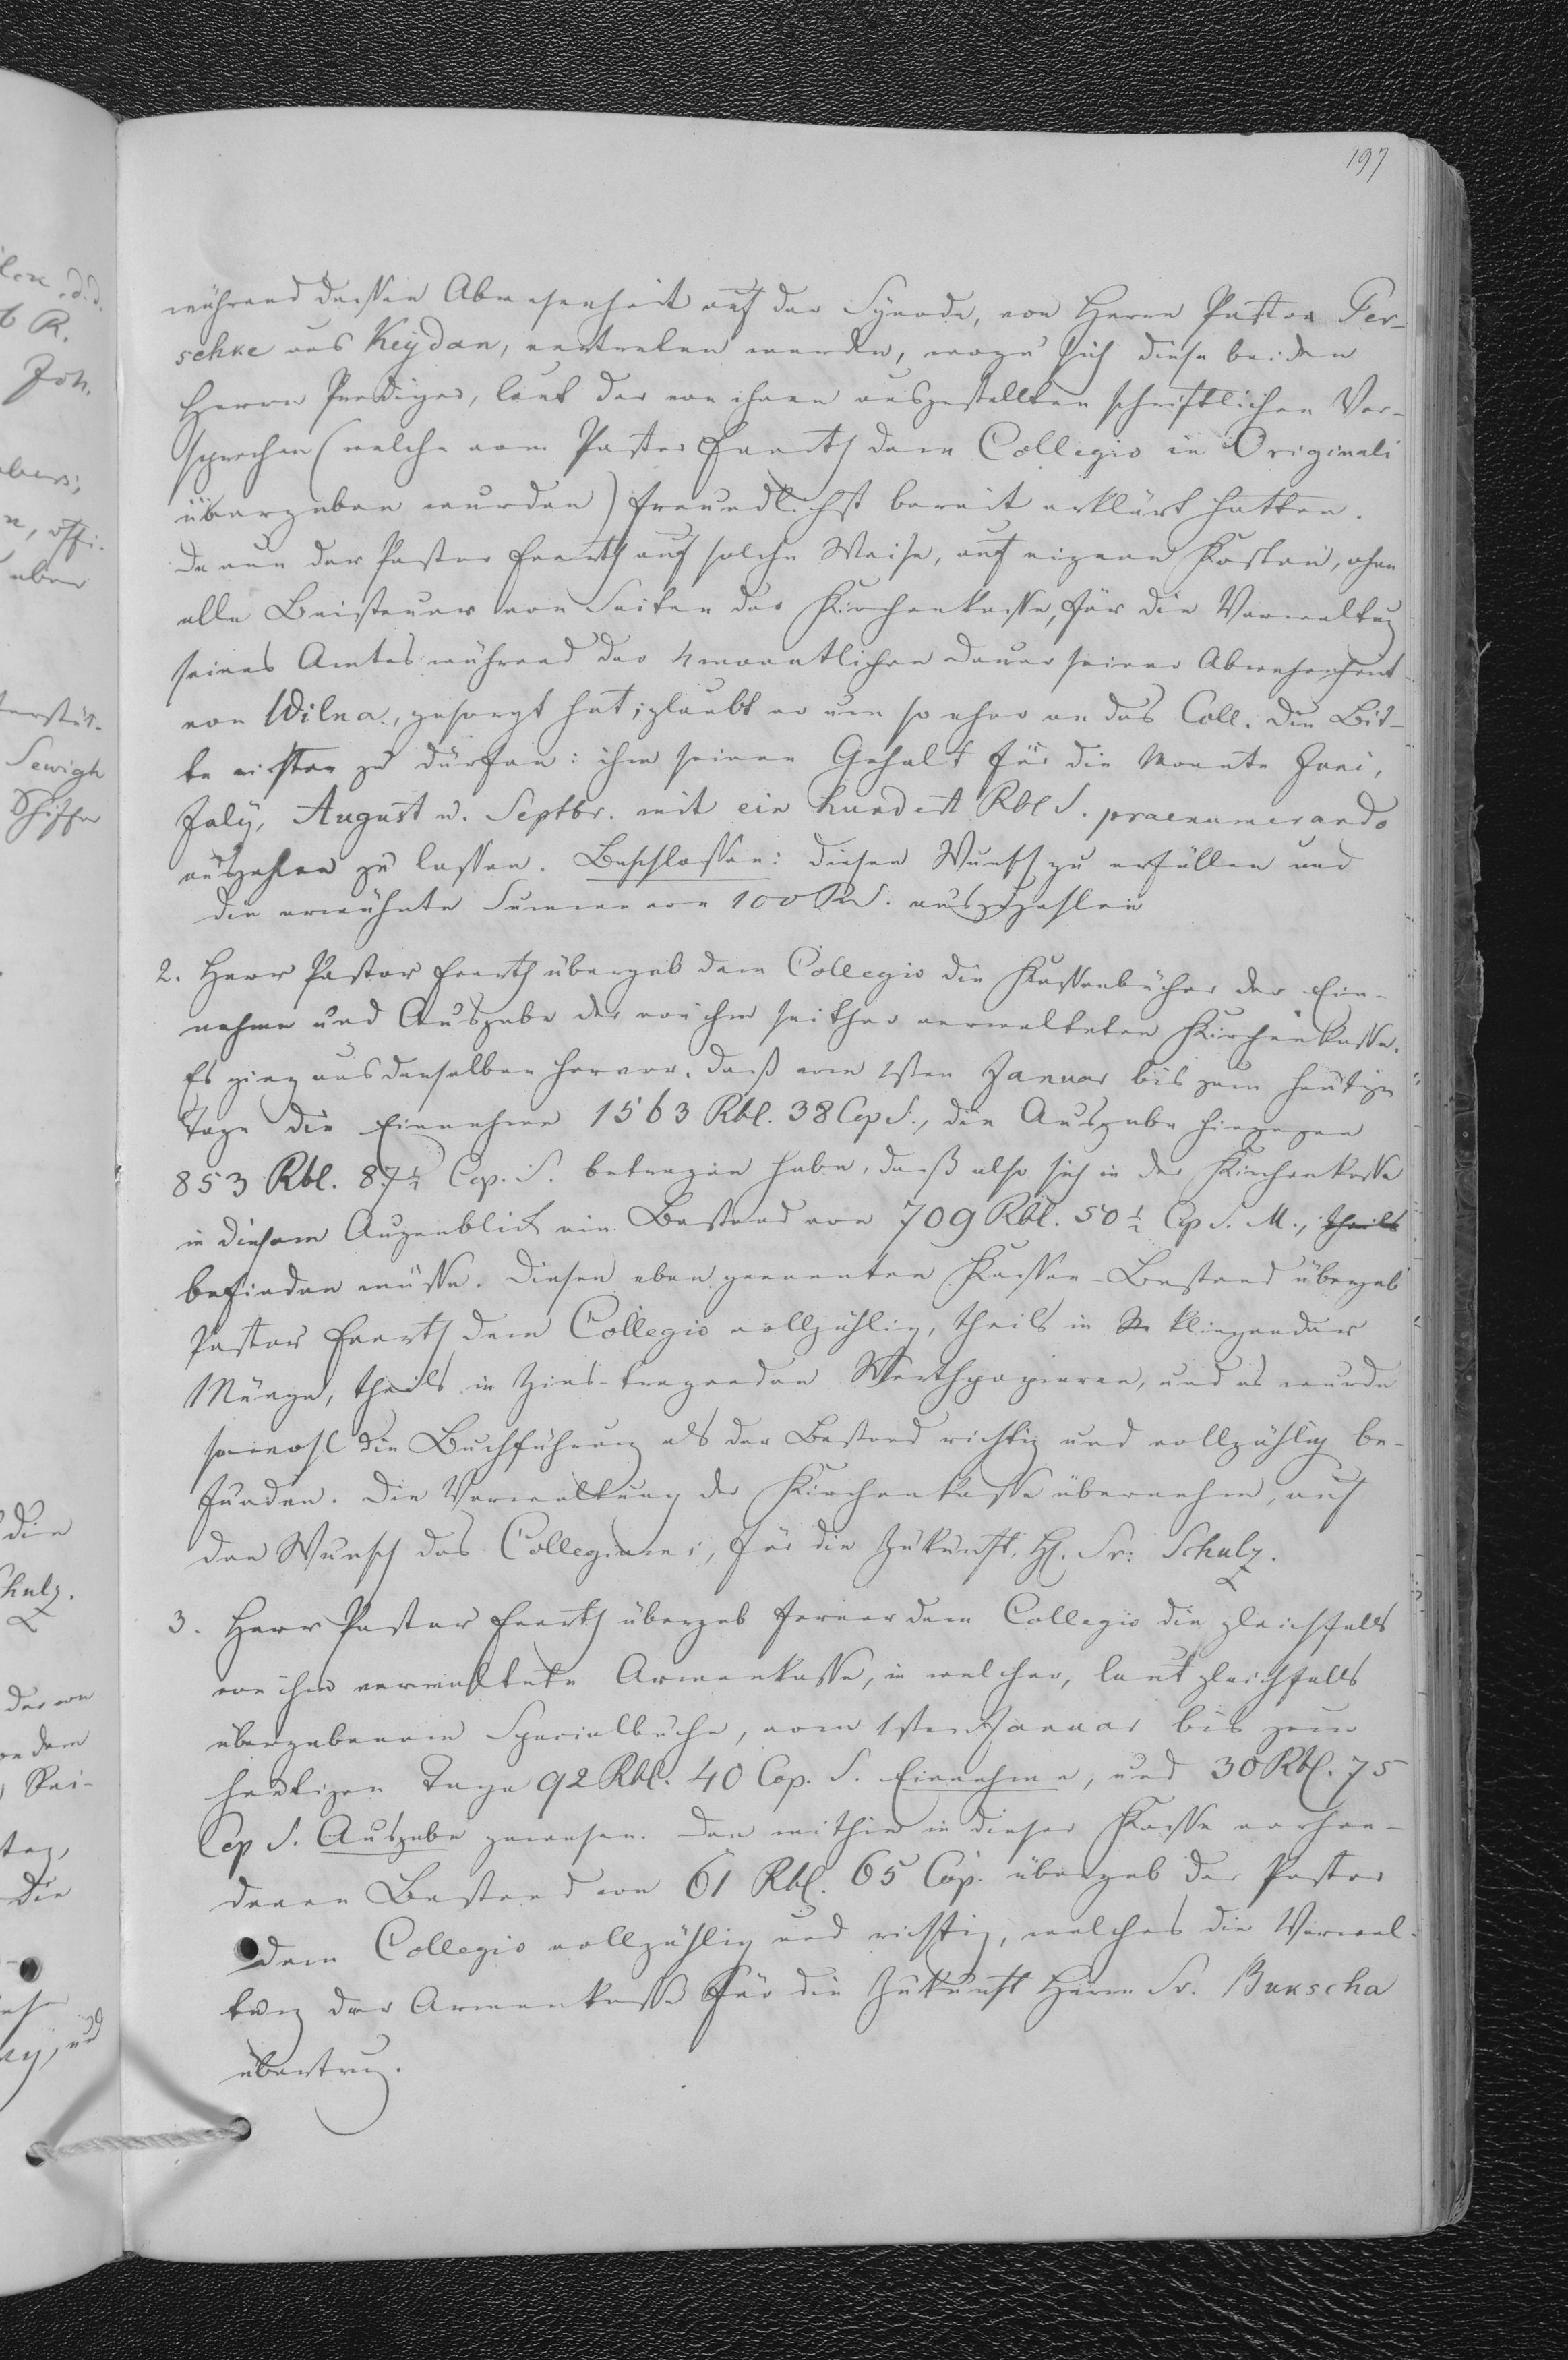 197
während dessen Abwesenheit auf der Synode, von Herrn Pastor Per-
schke aus Keydan, vertreten werden, wozu sich diese beiden
Herrn Prediger, laut der von ihnen ausgestellten schriftlichen Ver-
sprechen (welche vom Pastor Everth dem Collegio in Originali
übergeben wurden) freundlichst bereit erklärt hatten.
Da nun der Pastor Everth auf solche Weise, auf eigene Kosten, ohne
alle Beisteuer von Seiten der Kirchenkasse, für die Verwaltung
seines Amtes während der 4monatlichen Dauer seiner Abwesenheit
von Wilna, gesorgt hat; glaubt er um so eher an das Coll. die Bit-
te richten zu dürfen: ihm seinen Gehalt für die Monate Juni,
July, August u. Septbr. mit ein hundert Rbl S. praenumerando
auszahlen zu lassen. Beschlossen: diesen Wunsch zu erfüllen und
die erwähnte Summe von 100 RS. auszuzahlen
2. Herr Pastor Everth übergab dem Collegio die Kassenbücher der Ein-
nahme und Ausgabe der von ihm seither verwalteten Kirchenkasse.
Es ging aus denselben hervor, daß vom 1sten Januar bis zum heutigen
Tage die Einnahme 1563 Rbl. 38 Cop S., die Ausgabe hingegen
853 Rbl. 87½ Cop. S. betragen habe, daß also sich in der Kirchenkasse
in diesem Augenblick ein Bestand von 709 Rbl. 50½ Cp S. M., theils
befinden müsse. Diesen eben genannten Kassen-Bestand übergab
Pastor Everth dem Collegio vollzählig, theils in klingender
Münze, theils in Zins-tragenden Werthpapieren, und es wurde
sowohl die Buchführung als der Bestand richtig und vollzählig be-
funden. Die Verwaltung der Kirchenkasse übernahm, auf
den Wunsch des Collegiums, für die Zukunft, H. Sr: Schulz.
3. Herr Pastor Everth übergab ferner dem Collegio die gleichfalls
von ihm verwaltete Armenkasse, in welcher, laut gleichfalls
übergebenem Specialbuche, vom 1sten Januar bis zum
heutigen Tage 92 Rbl. 40 Cop. S. Einnahme, und 30 Rbl. 75
Cop S. Ausgabe gewesen. Den mithin in dieser Kasse vorhan-
denen Bestand von 61 Rbl. 65 Cop. übergab der Pastor
dem Collegio vollzählig und richtig, welches die Verwal-
tung der Armenkasse für die Zukunft Herrn Sr. Bukscha
übertrug.